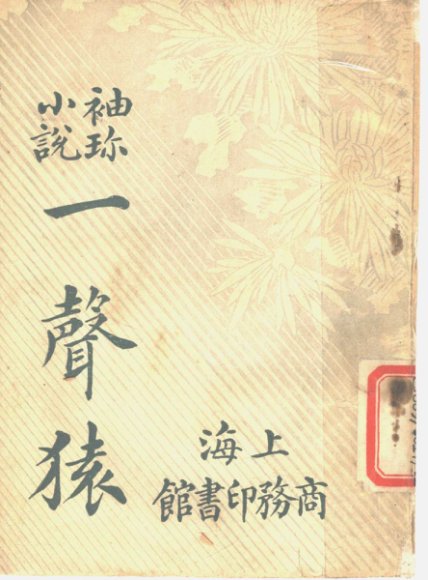 袖珍
小説
一聲猿
上海
商務印書館